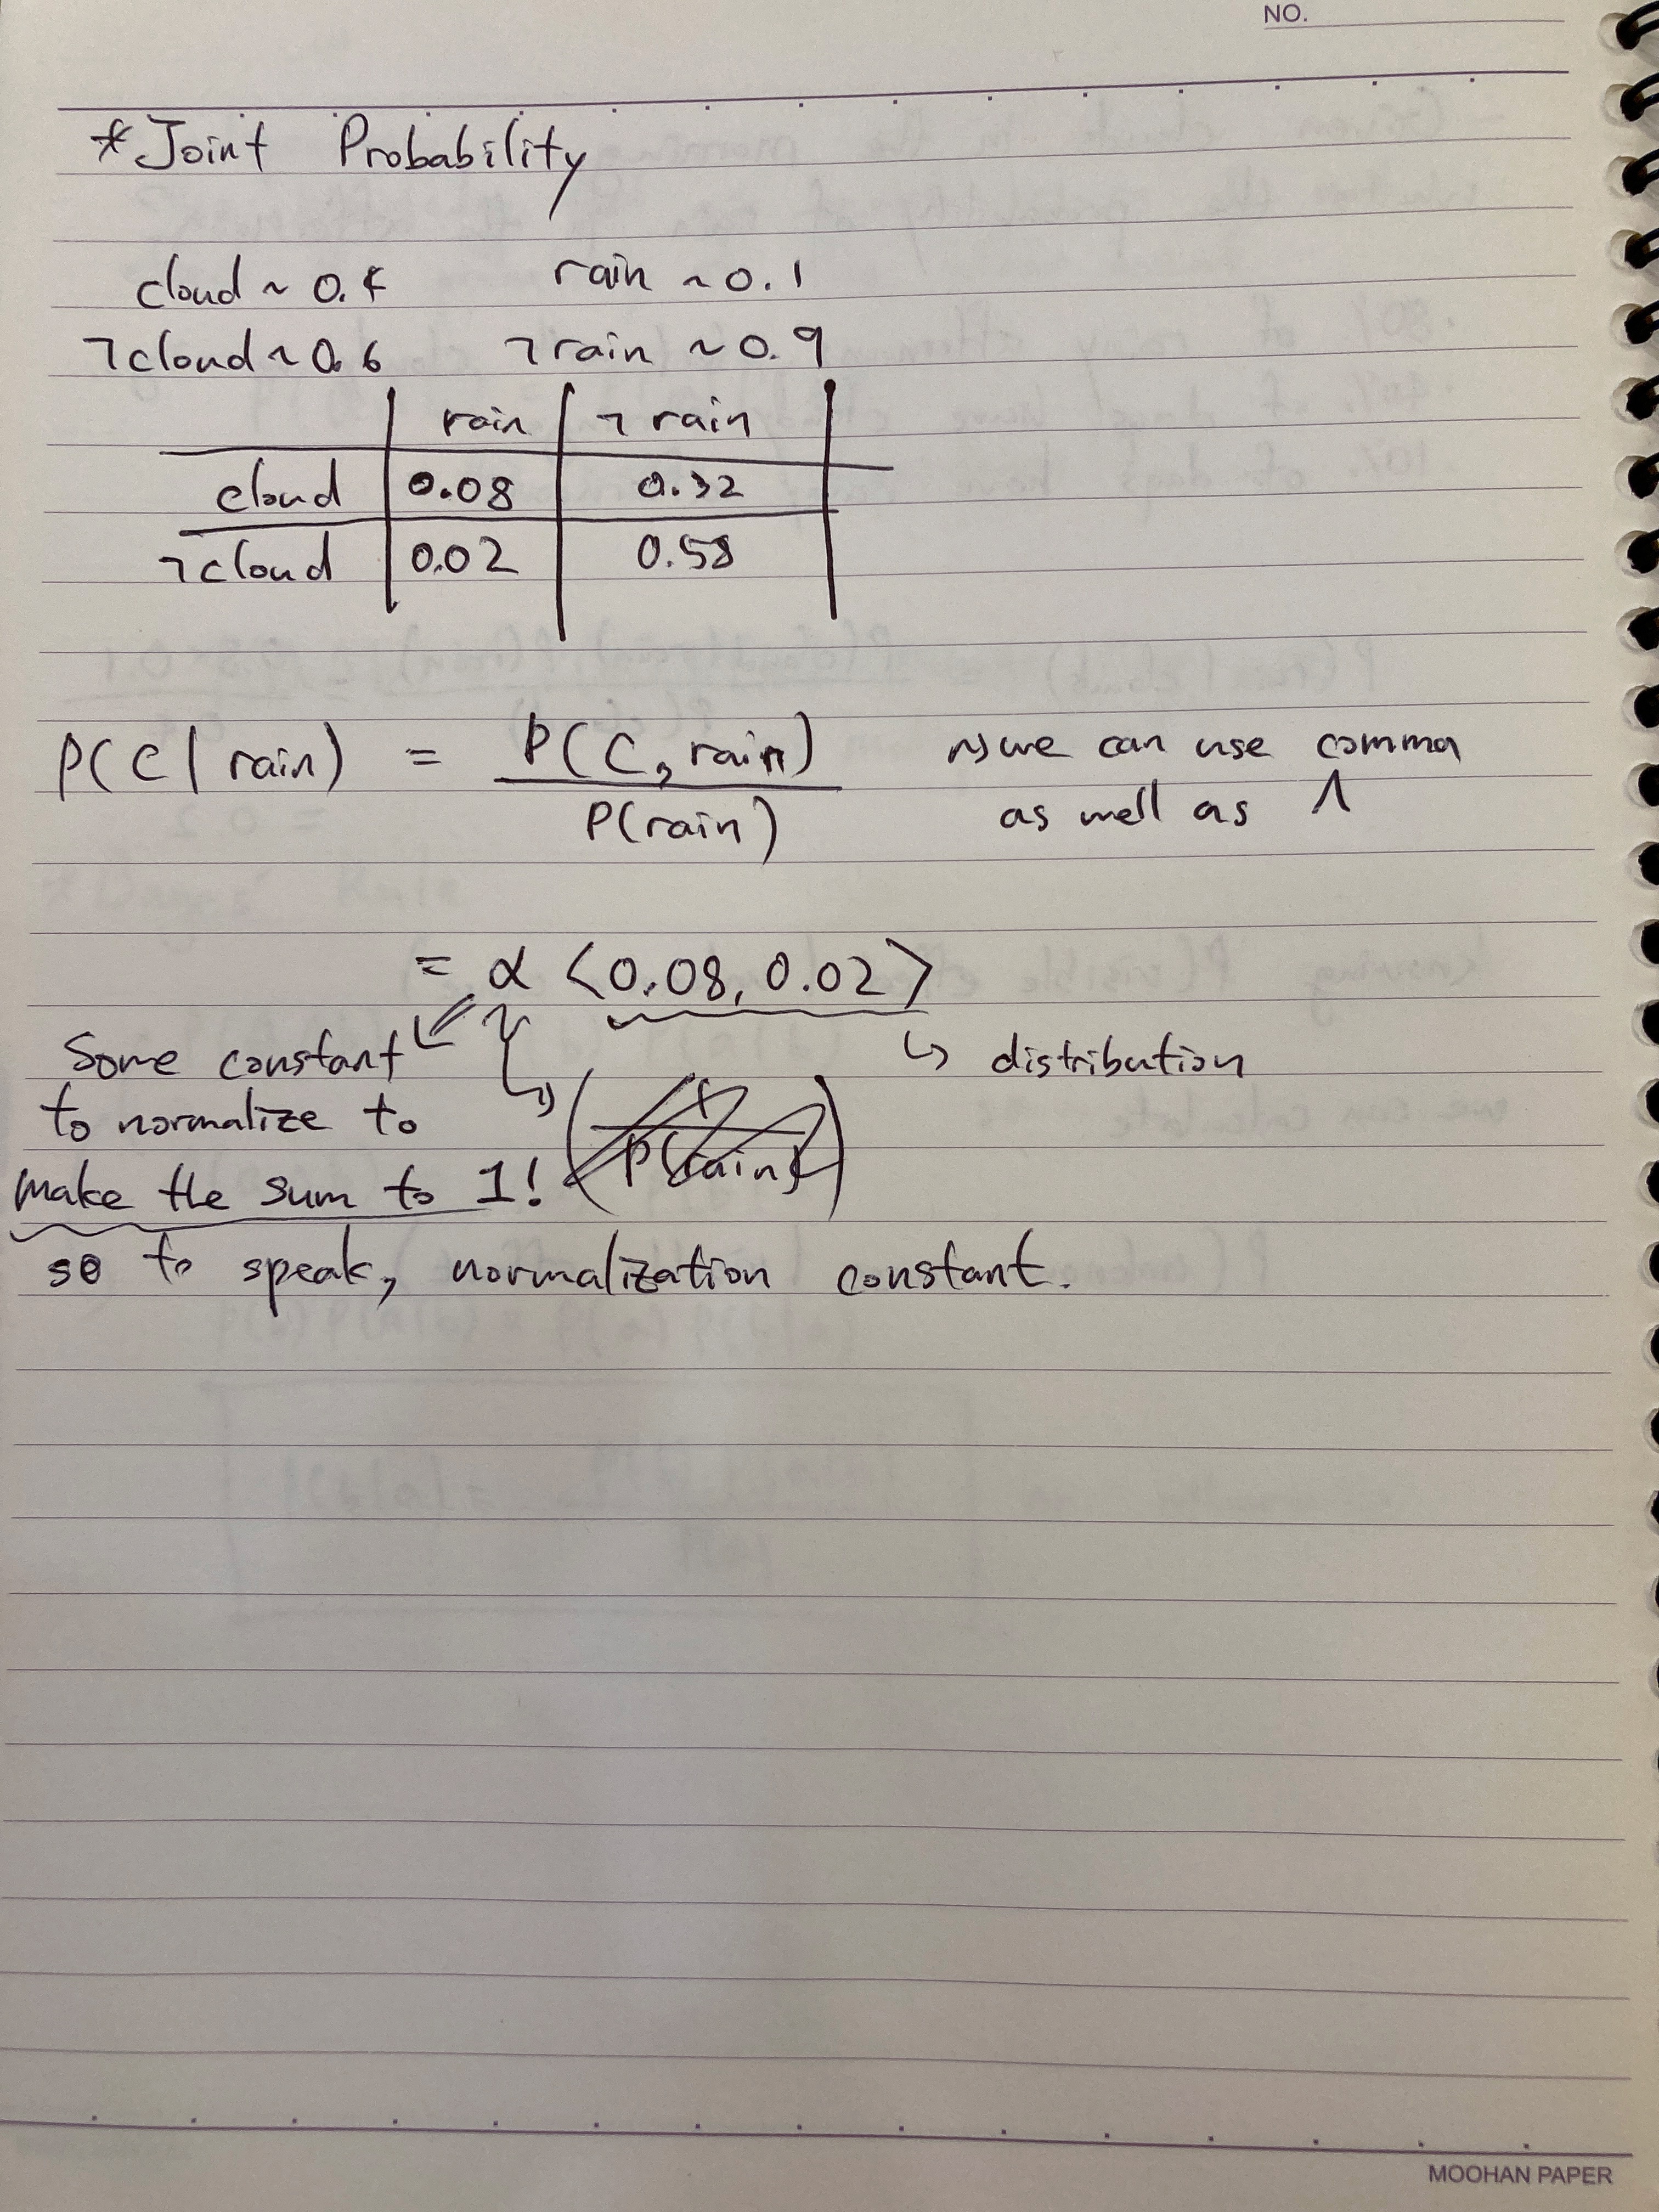 NO.
*Joint Probability
cloud ~ 0.4 rain ~ 0.1
¬cloud ~ 0.6 ¬rain ~ 0.9
rain ¬rain
cloud 0.08 0.32
¬cloud 0.02 0.58
P(C | rain) = P(C, rain) / P(rain) ~> we can use comma
as well as ∧
= α <0.08, 0.02>
Some constant ↳ distribution
to normalize to
make the sum to 1! (1 / P(rain))
so to speak, normalization constant.
MOOHAN PAPER